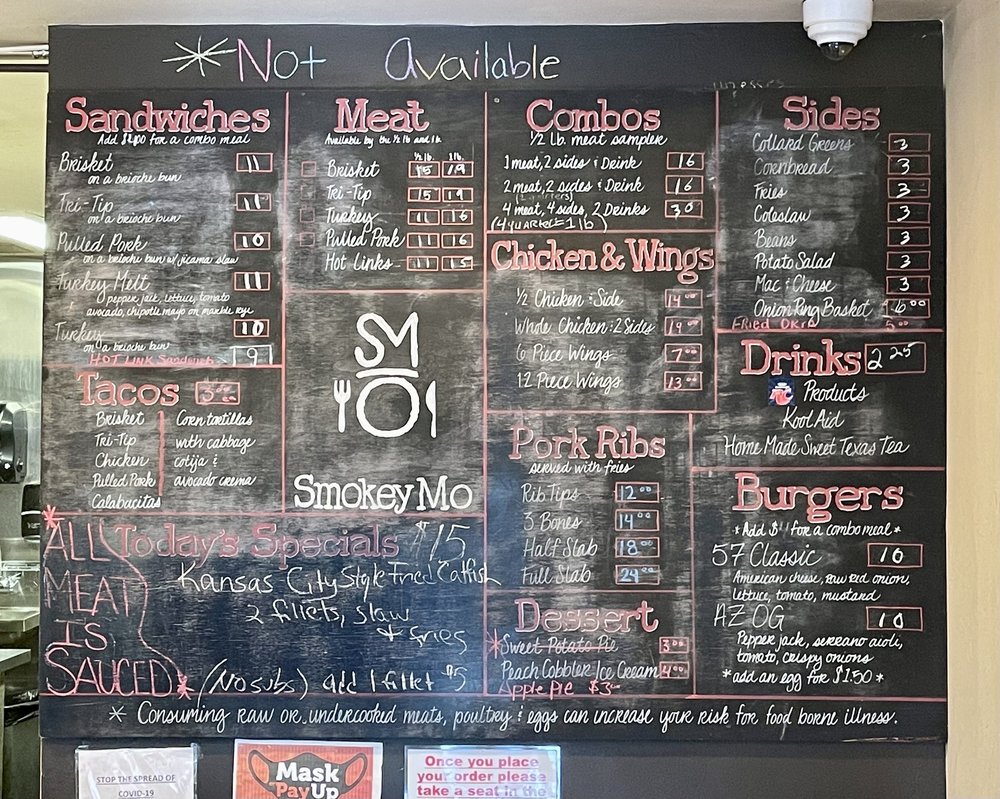 *Not Available
Sandwiches
Add $4.00 for a combo meal
Brisket 11
on a brioche bun
Tri-Tip 11
on a brioche bun
Pulled Pork 10
on a brioche bun w/ jicama slaw
Turkey Melt 11
pepper jack, lettuce, tomato
avocado, chipotle mayo on marble rye
Turkey 10
on a brioche bun
HOT LINK Sandwich 9
Tacos 3.00 ea
Brisket
Tri-Tip
Chicken
Pulled Pork
Calabacitas
Corn tortillas
with cabbage
cotija &
avocado crema
Meat
Available by the ½ lb and lb.
½ lb. 1 lb.
Brisket 15 19
Tri-Tip 15 19
Turkey 11 16
Pulled Pork 11 16
Hot Links 11 15
SMO
Smokey Mo
Combos
½ Lb. meat sampler
1 meat, 2 sides & Drink 16
2 meat, 2 sides & Drink 16
(2 quarters)
4 meat, 4 sides, 2 Drinks 30
(4 quarters = 1 lb)
Chicken & Wings
½ Chicken & Side 14.00
Whole Chicken & 2 Sides 19.00
6 Piece Wings 7.00
12 Piece Wings 13.00
Pork Ribs
served with fries
Rib Tips 12.00
3 Bones 14.00
Half Slab 18.00
Full Slab 24.00
Dessert
*Sweet Potato Pie 3.00
Peach Cobbler Ice Cream 4.00
Apple Pie $3.00
Sides
Collard Greens 3
Cornbread 3
Fries 3
Coleslaw 3
Beans 3
Potato Salad 3
Mac & Cheese 3
Onion Ring Basket 6.00
Fried Okra 5.00
Drinks 2.25
RC Products
Kool Aid
Home Made Sweet Texas Tea
Burgers
*Add $4 for a combo meal*
57 Classic 10
American cheese, raw red onion,
lettuce, tomato, mustard
AZ OG 10
Pepper jack, serrano aioli,
tomato, crispy onions
*add an egg for $1.50*
Today's Specials $15
Kansas City Style Fried Catfish
2 fillets, slaw
+ fries
(No subs) add 1 fillet $5
*ALL
MEAT
IS
SAUCED*
* Consuming raw or undercooked meats, poultry & eggs can increase your risk for food borne illness.
STOP THE SPREAD OF
COVID-19
Mask
Pay Up
Once you place
your order please
take a seat in the